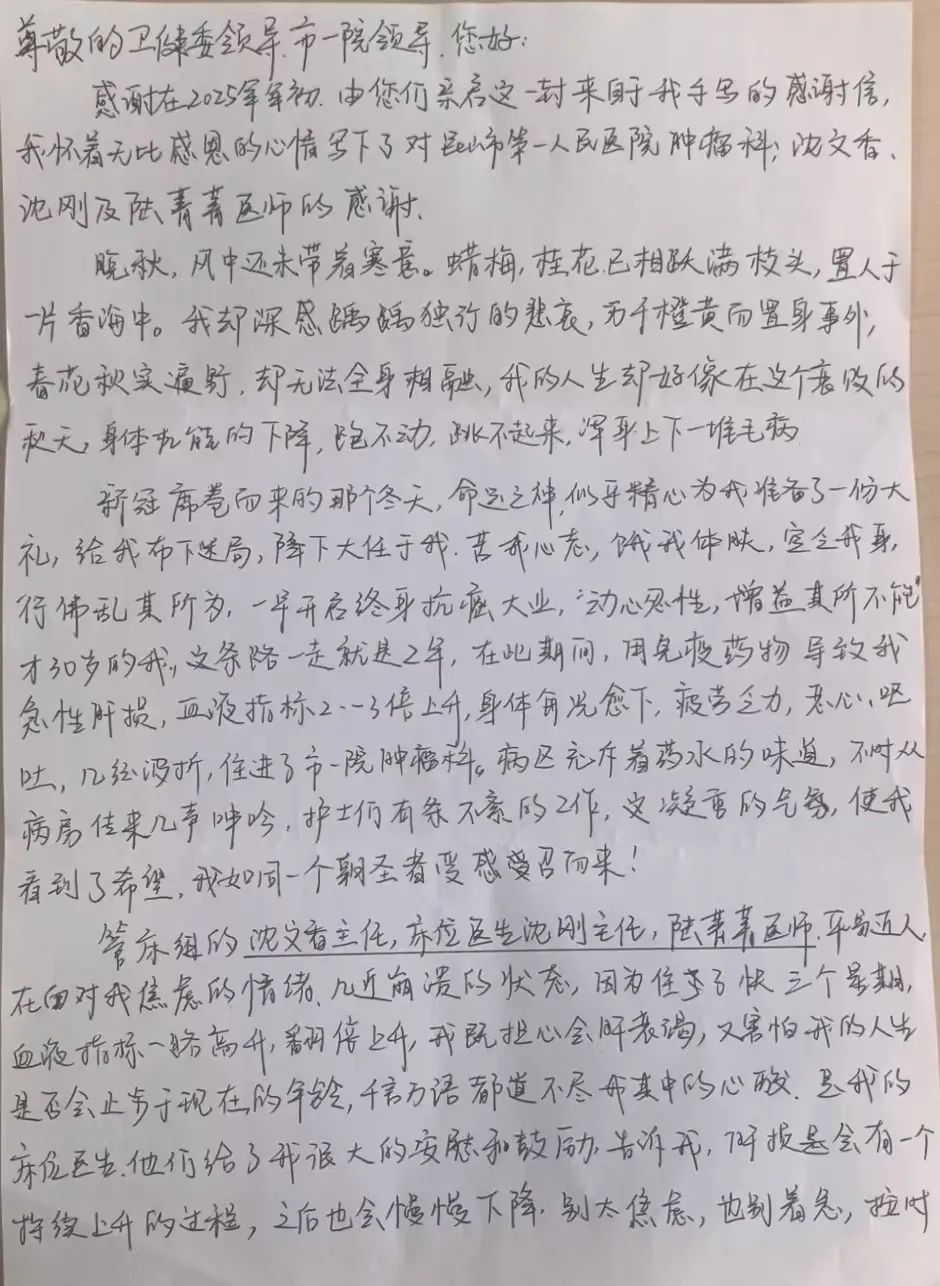 尊敬的卫健委领导.市一院领导.您好:
感谢在2025年年初.由您们亲启这一封来自于我手写的感谢信,
我怀着无比感恩的心情写下了对昆山市第一人民医院肿瘤科;沈文香、
沈刚及陆菁菁医师的感谢.
晚秋,风中还未带着寒意。蜡梅,桂花已相跃满枝头,置人于
一片香海中。我却深感踽踽独行的悲哀,万千橙黄而置身事外,
春花秋实遍野,却无法全身相融,我的人生却好像在这个衰败的
秋天,身体机能的下降,跑不动,跳不起来,浑身上下一堆毛病
新冠席卷而来的那个冬天,命运之神,似乎精心为我准备了一份大
礼,给我布下迷局,降下大任于我.苦我心志,饿我体肤,空乏我身,
行佛乱其所为,一早开启终身抗癌大业,“动心忍性,增益其所不能”
才30岁的我,这条路一走就是2年,在此期间,用免疫药物导致我
急性肝损,血液指标2--3倍上升,身体每况愈下,疲劳乏力,恶心、呕
吐,几经波折,住进了市一院肿瘤科。病区充斥着药水的味道,不时从
病房传来几声呻吟,护士们有条不紊的工作,这凝重的气氛,使我
看到了希望,我如同一个朝圣者受感受召而来!
管床组的沈文香主任,床位医生沈刚主任,陆菁菁医师.平易近人,
在面对我焦虑的情绪、几近崩溃的状态,因为住了快三个星期,
血液指标一路高升,翻倍上升,我既担心会肝衰竭,又害怕我的人生
是否会止步于现在的年龄,千言万语都道不尽我其中的心酸.是我的
床位医生.他们给了我很大的安慰和鼓励.告诉我,肝损是会有一个
持续上升的过程,之后也会慢慢下降.别太焦虑,也别着急,按时